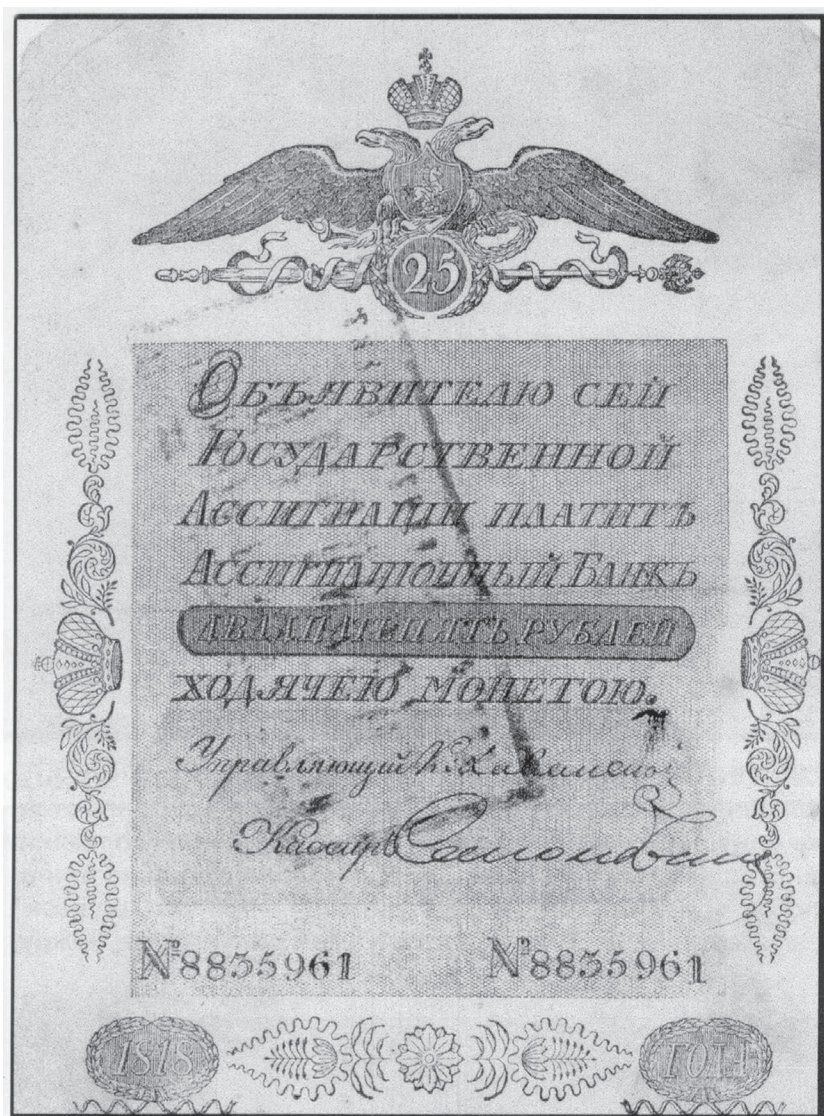 25
Объявителю сей
Государственной
Ассигнации платитъ
Ассигнаціонный Банкъ
двадцать пять рублей
ходячею монетою.
Управляющий
Кассиръ
№8835961 №8835961
1818 ГОДА